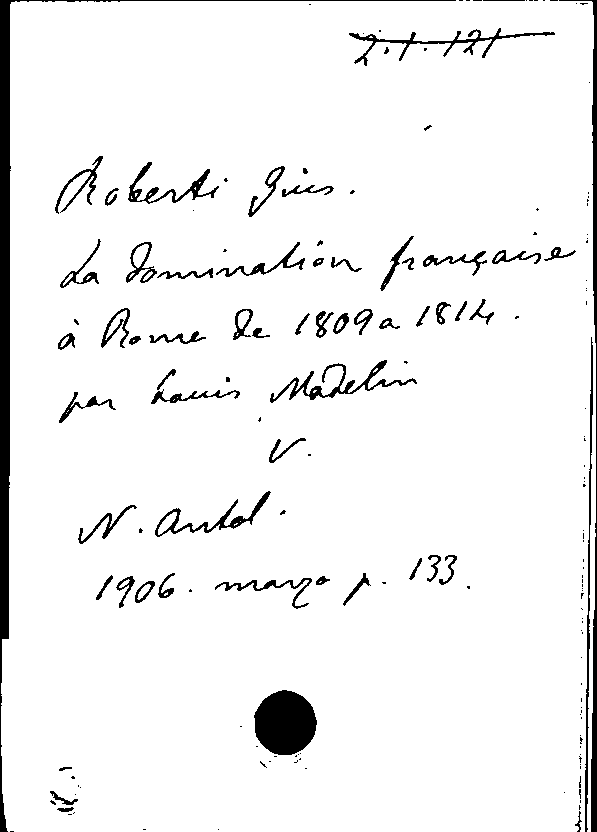 2.1.121
Roberti Gius.
La domination française
à Rome de 1809 a 1814.
par Louis Madelin
V.
N. Antol.
1906. marzo p. 133.